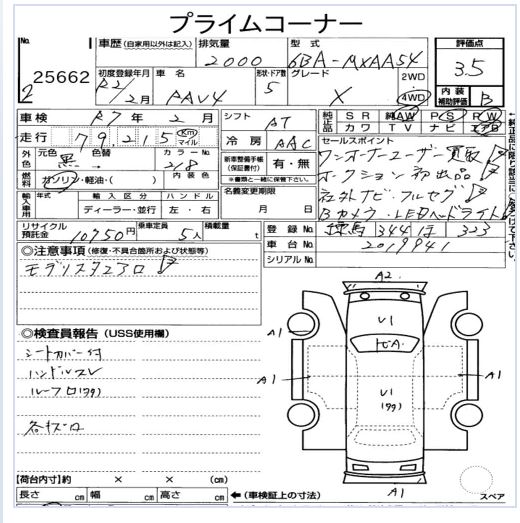 プライムコーナー
No. 2 25662
車歴 (自家用以外は記入) 排気量 2000 型式 6BA-MXAA54 評価点 3.5
初度登録年月 R2/2月 車名 RAV4 形状・ドア数 5 グレード X 2WD 4WD 内装補助評価 B
車検 R7年 2月 シフト AT 純正品 SR 純AW PS PW
カワ TV ナビ エアB
走行 79,215 Km マイル 冷房 AAC セールスポイント
外色 元色 黒 色替 カラーNo. 218 新車整備手帳(保証書付) 有・無 ワンオーナーユーザー買取
燃料 ガソリン・軽油・( ) 内装色 ※書類と一緒に保管下さい。 オークション初出品
輸入車用 年式 輸入区分 ハンドル 名義変更期限 社外ナビ フルセグ
ディーラー・並行 左・右 月 日 Bカメラ・LEDヘッドライト
リサイクル預託金 10750円 乗車定員 5人 積載量 t 登録No. 練馬 344 ほ 323
車台No. 2019941
シリアルNo.
◎注意事項 (修復・不具合箇所および状態等)
モデリスタエアロ
◎検査員報告 (USS使用欄)
シートカバー付
ハンドルスレ
ルーフ
各キズ
A2
A1
V1
A1
A1
V1
A1
スペア
【荷台内寸】約 × × (cm)
長さ cm 幅 cm 高さ cm ←(車検証上の寸法)